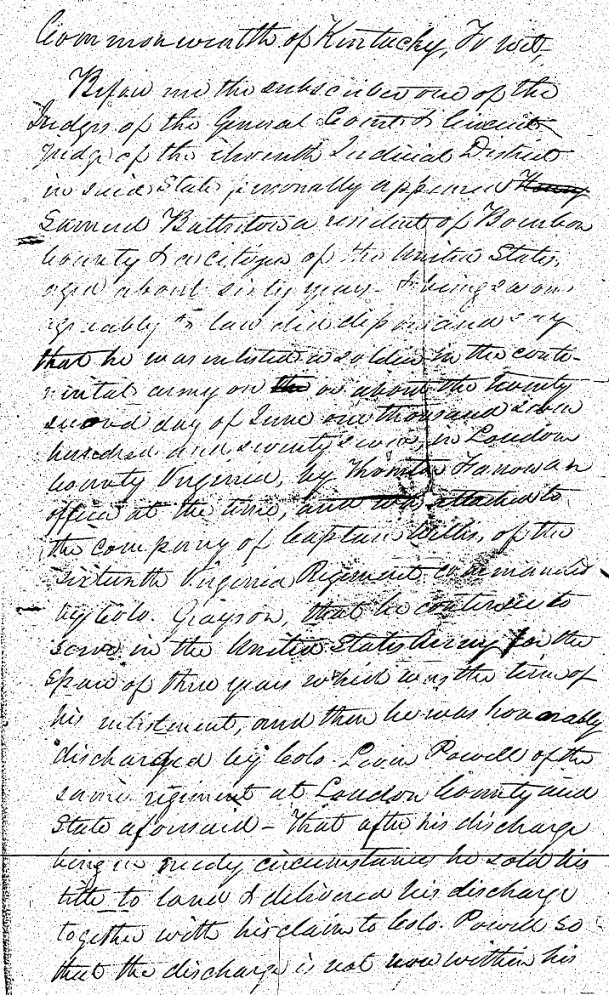 Commonwealth of Kentucky, To wit,
Before me the subscriber one of the
Judges of the General Court & Circuit
Judge of the eleventh Judicial District
in said State personally appeared Henry
Samuel a resident of Bourbon
County & a citizen of the United States,
aged about sixty years & being sworn
agreably to law did depose and say
that he was enlisted a soldier in the conti-
nental army on the or about the twenty
second day of June one thousand seven
hundred and seventy seven, in Loudon
County Virginia, by an
officer at the time, and was attached to
the company of Captain Willis, of the
sixteenth Virginia Regiment commanded
by Colo. Grayson, that he continued to
serve in the United States Army for the
space of three years which was the term of
his enlistment, and then he was honorably
discharged by Colo. Leven Powell of the
same regiment at Loudon County and
State aforesaid - That after his discharge
being in needy circumstances he sold his
title to land & delivered his discharge
together with his claim to Colo. Powell so
that the discharge is not now within his